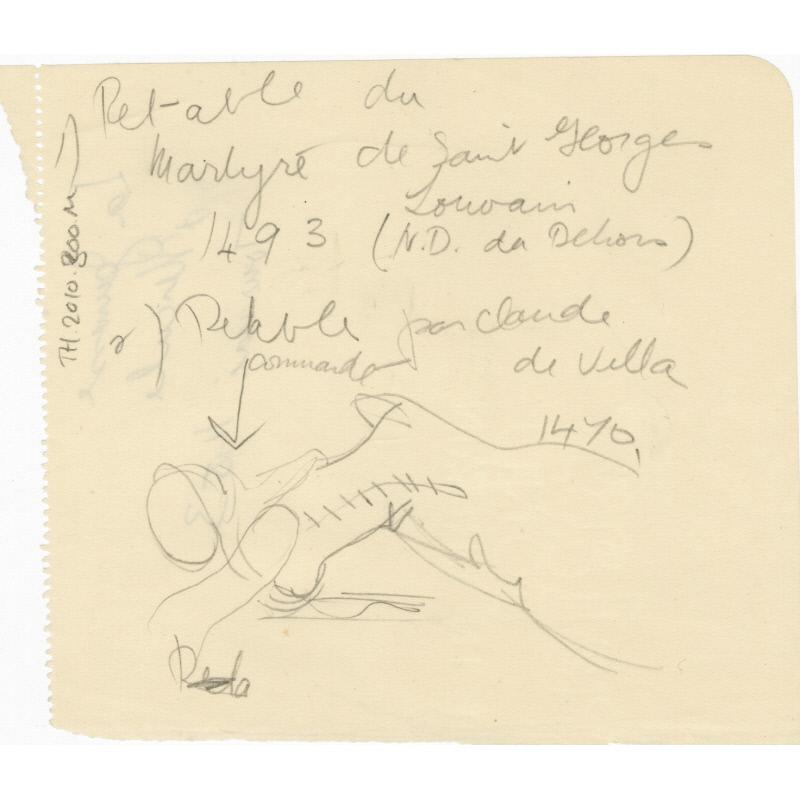 1) Retable du
Martyre de Saint Georges
Louvain
1493 (N.D. du Dehors)
2) Retable par Claude
commandé de Villa
1470.
TH.2010.800.M